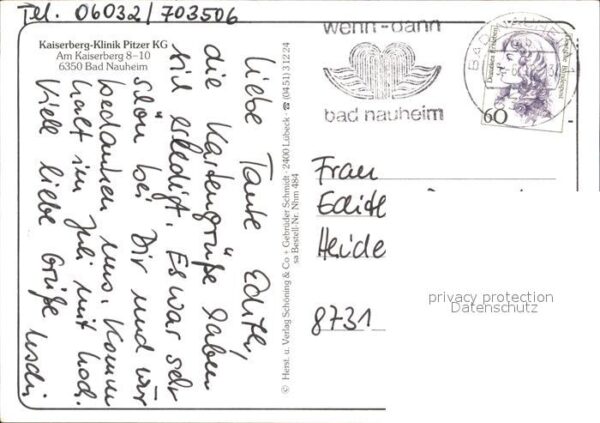 Tel. 06032/703506
Kaiserberg-Klinik Pitzer KG
Am Kaiserberg 8–10
6350 Bad Nauheim
liebe Tante Edith,
die Kartengrüße haben
sich erledigt. Es war sehr
schön bei Dir und wir
bedanken uns. Komm
halt im Juli mit hoch.
Viele liebe Grüße
© Herst. u. Verlag Schöning & Co + Gebrüder Schmidt · 2400 Lübeck · ☎ (04 51) 3 12 24
sa Bestell-Nr. Nhm 484
wenn-dann
bad nauheim
BAD NAUHEIM 1
60
Frau
Edith
Heide
8731
privacy protection
Datenschutz